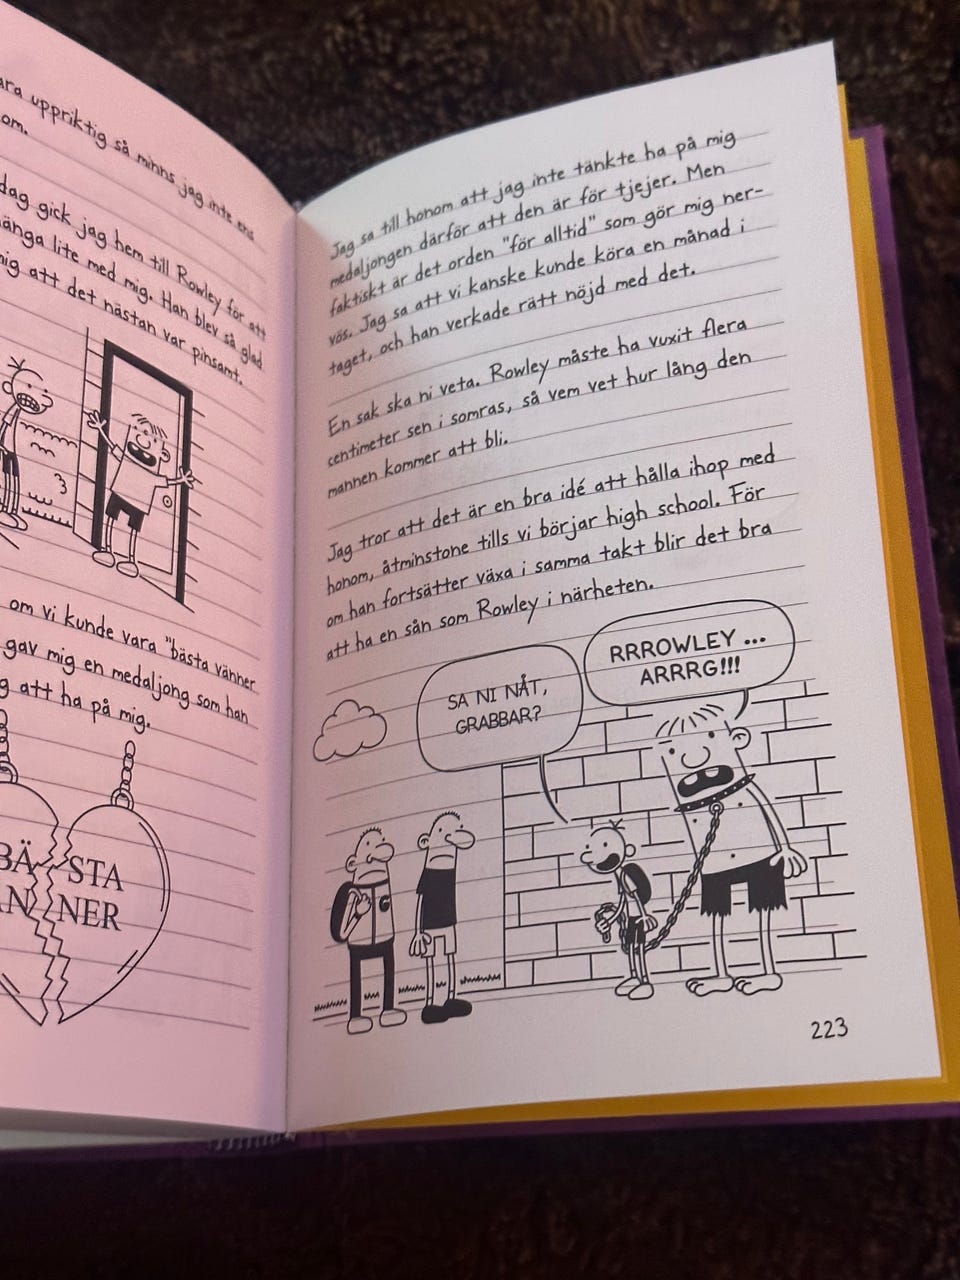 ara uppriktig så minns jag inte ens
om.
dag gick jag hem till Rowley för att
änga lite med mig. Han blev så glad
nig att det nästan var pinsamt.
om vi kunde vara "bästa vänner
gav mig en medaljong som han
g att ha på mig.
BÄ STA
ÄN NER
Jag sa till honom att jag inte tänkte ha på mig
medaljongen därför att den är för tjejer. Men
faktiskt är det orden "för alltid" som gör mig ner-
vös. Jag sa att vi kanske kunde köra en månad i
taget, och han verkade rätt nöjd med det.
En sak ska ni veta. Rowley måste ha vuxit flera
centimeter sen i somras, så vem vet hur lång den
mannen kommer att bli.
Jag tror att det är en bra idé att hålla ihop med
honom, åtminstone tills vi börjar high school. För
om han fortsätter växa i samma takt blir det bra
att ha en sån som Rowley i närheten.
SA NI NÅT,
GRABBAR?
RRROWLEY ...
ARRRG!!!
223